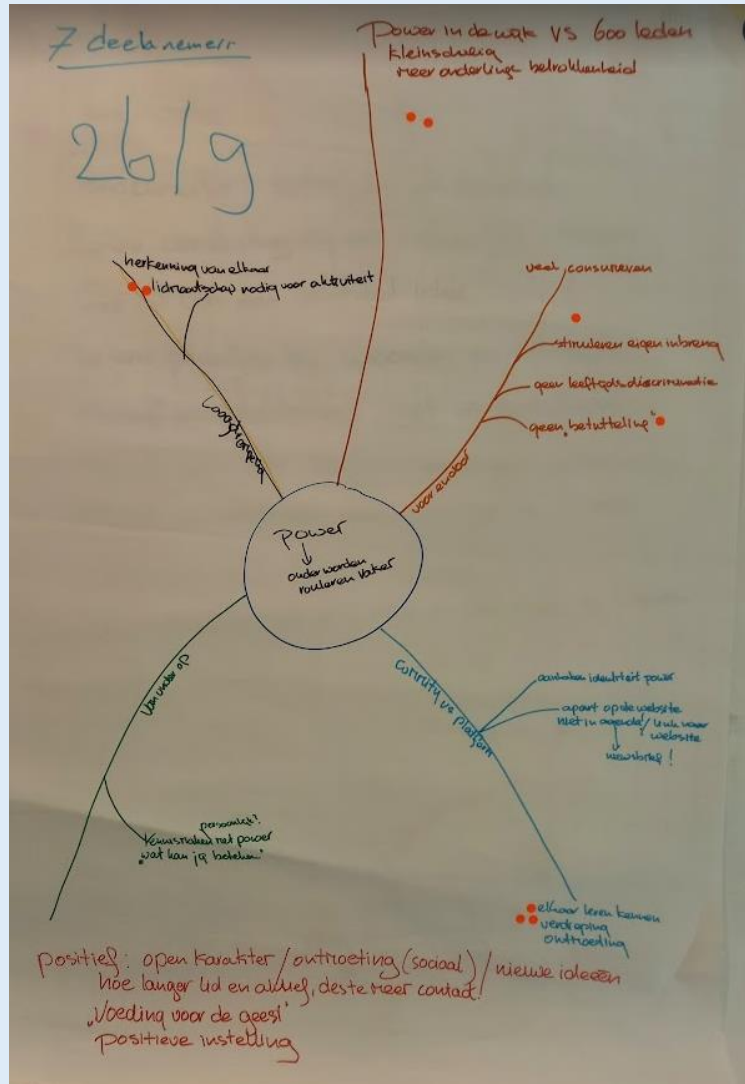 7 deelnemers
26/9
Power in de wijk VS 600 leden
kleinschalig
meer onderlinge betrokkenheid
herkenning van elkaar
lidmaatschap nodig voor aktiviteit
Laagdrempelig
veel consumeren
stimuleren eigen inbreng
geen leeftijdsdiscriminatie
geen „betutteling"
voor en door
Power
↓
ouder worden
rouleren vaker
van onder op
persoonlijk!
Kennismaken met power
„wat kan jij betekenen"
Comm'ty vs platform
identiteit power
apart op de website
niet in agenda / link naar website
↓
nieuwsbrief!
elkaar leren kennen
verdieping
ontmoeting
positief: open karakter / ontmoeting (sociaal) / nieuwe ideeën
hoe langer lid en aktief, deste meer contact!
„Voeding voor de geest"
positieve instelling